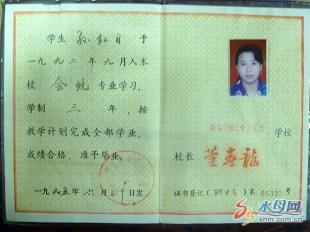 学生 孙红自 于
一九九二年九月入本
校 会统 专业学习,
学制 三 年,按
教学计划完成全部学业,
成绩合格、准予毕业。
一九九五年六月三十日发
学校
校长 董喜龙
证书登记( )第 号
水母网
shm.com.cn